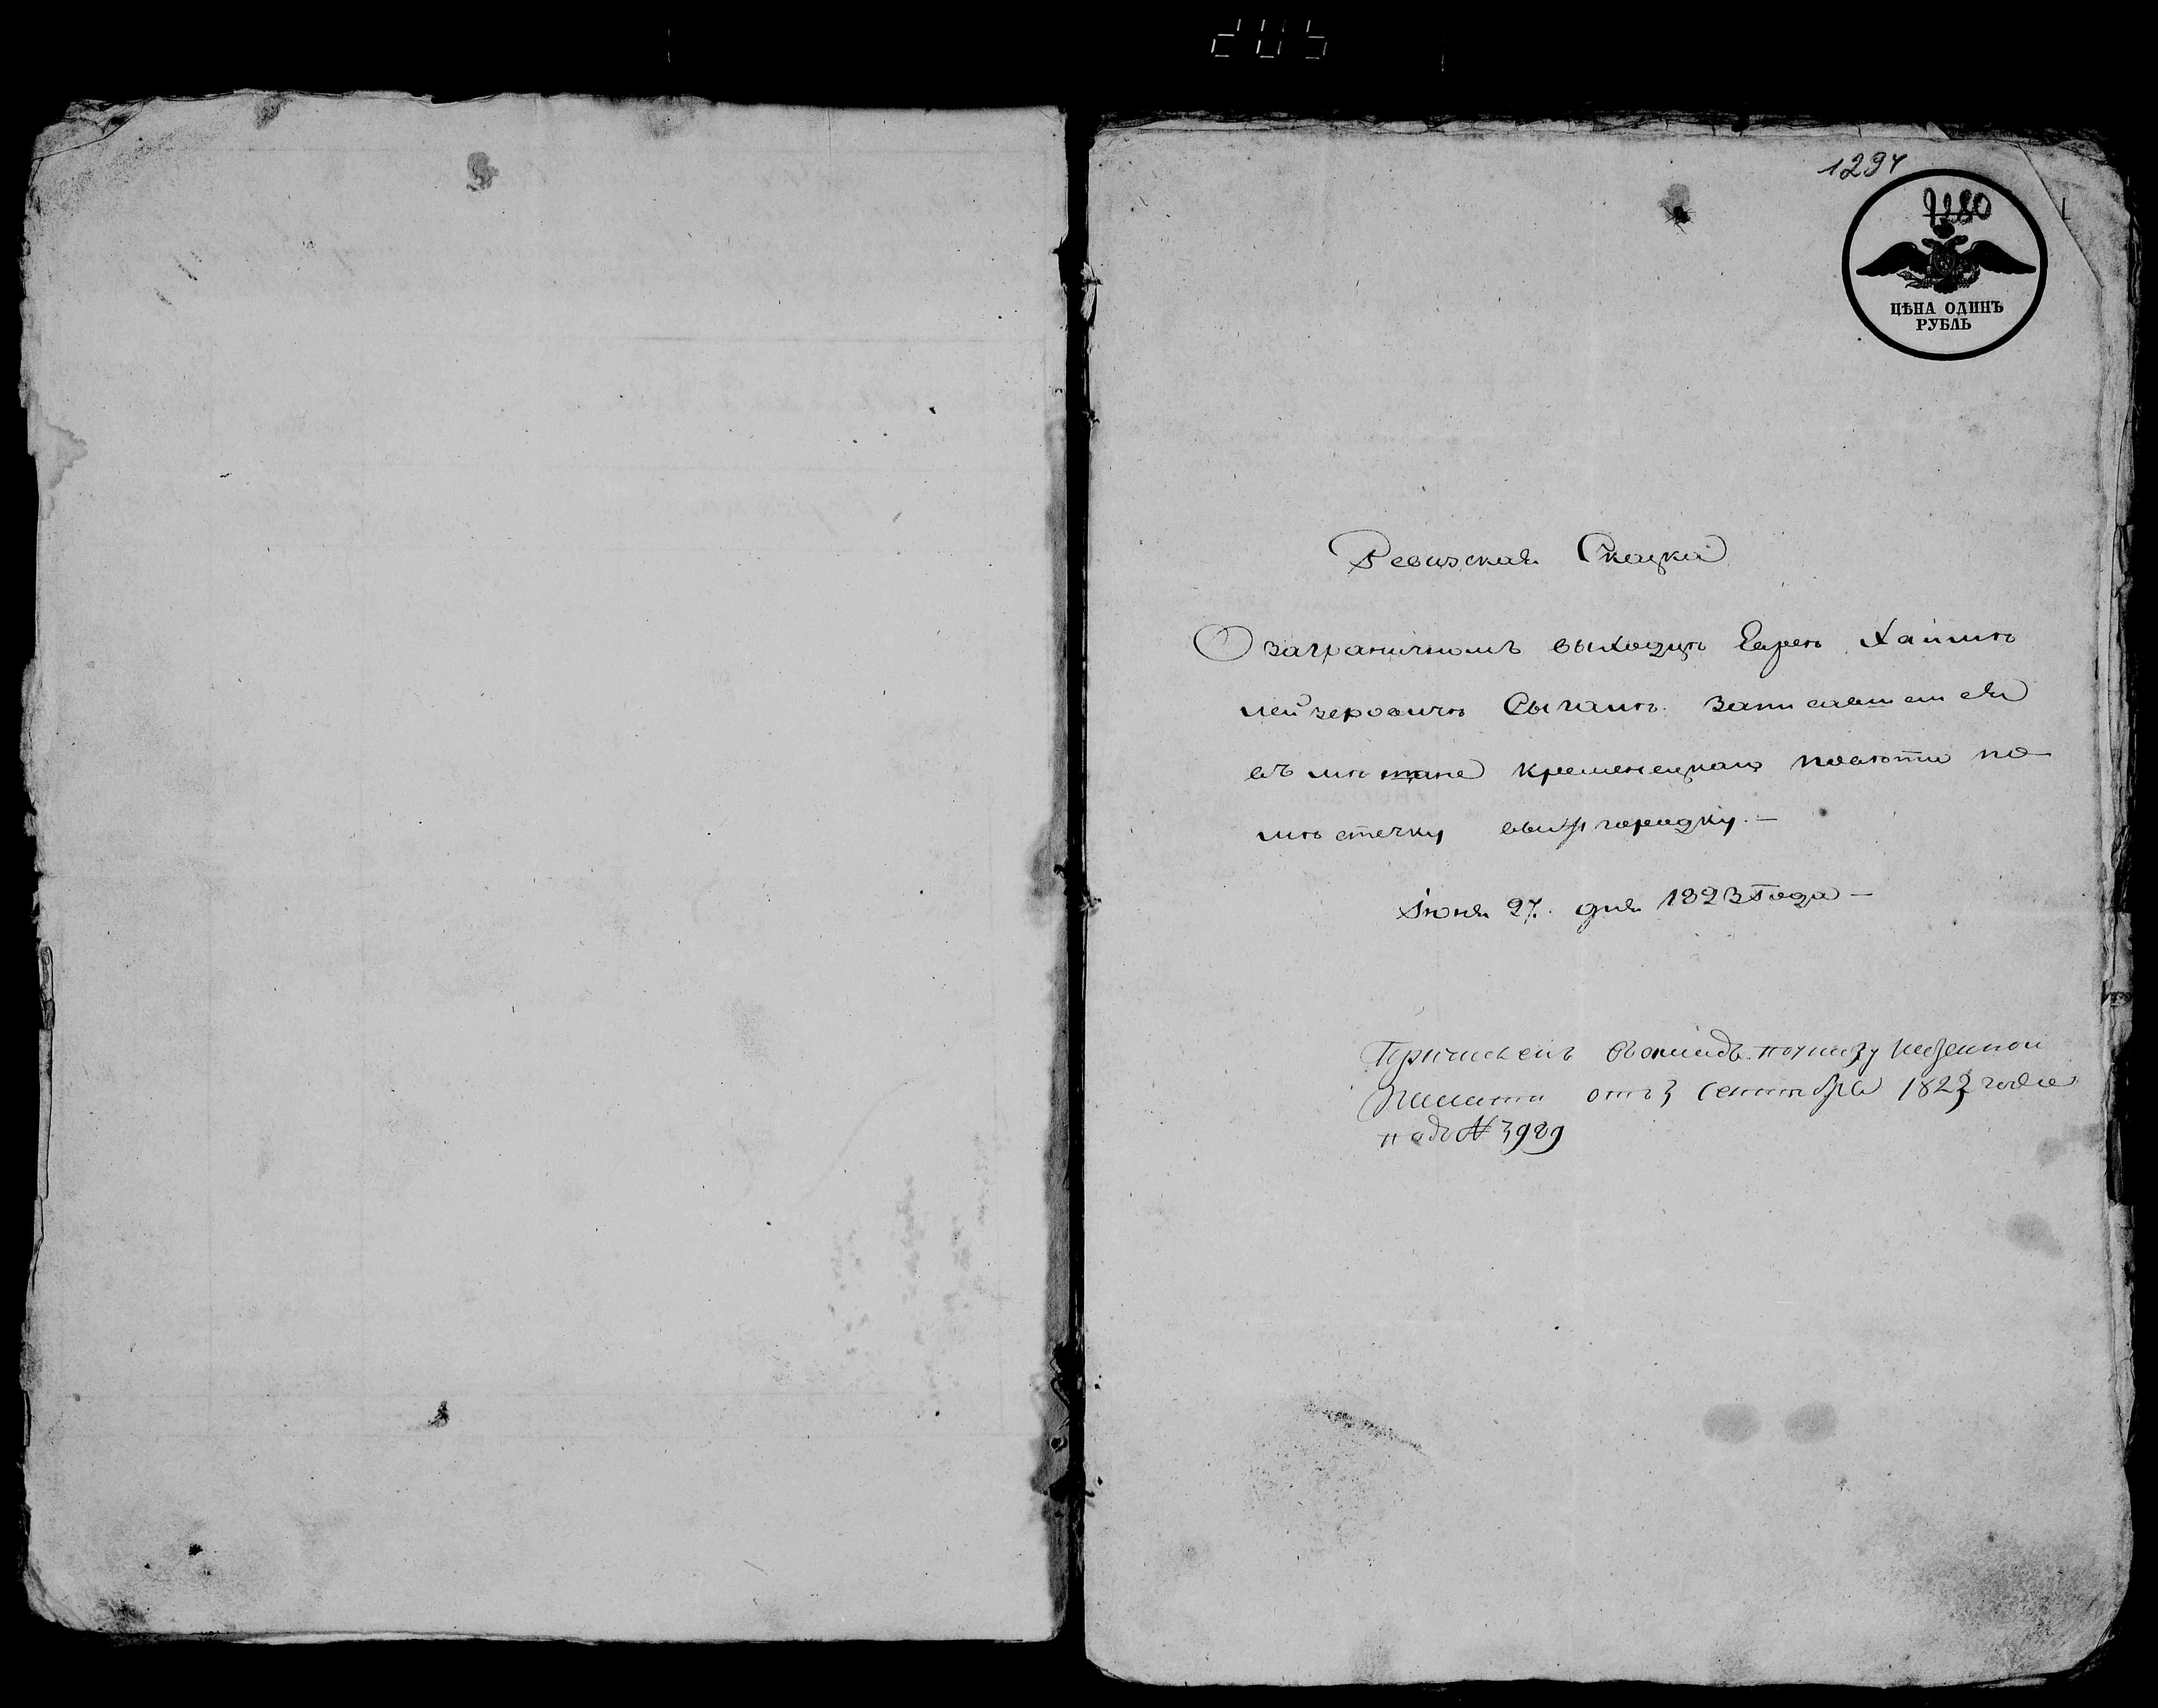 1297
1280
ЦѢНА ОДИНЪ
РУБЛЬ
Ревизская Сказка
О заграничномъ выходцѣ Евреѣ Хаимѣ
лейзеровичѣ Сыгалѣ записавшемся
въ мѣщане кременецкаго повѣта по
мѣстечку вышгородку.—
Іюня 27. дня 1823 Года —
Причисленъ въ окладъ по указу казенной
Палаты отъ 3 Сентября 1823 года
подъ № 3989